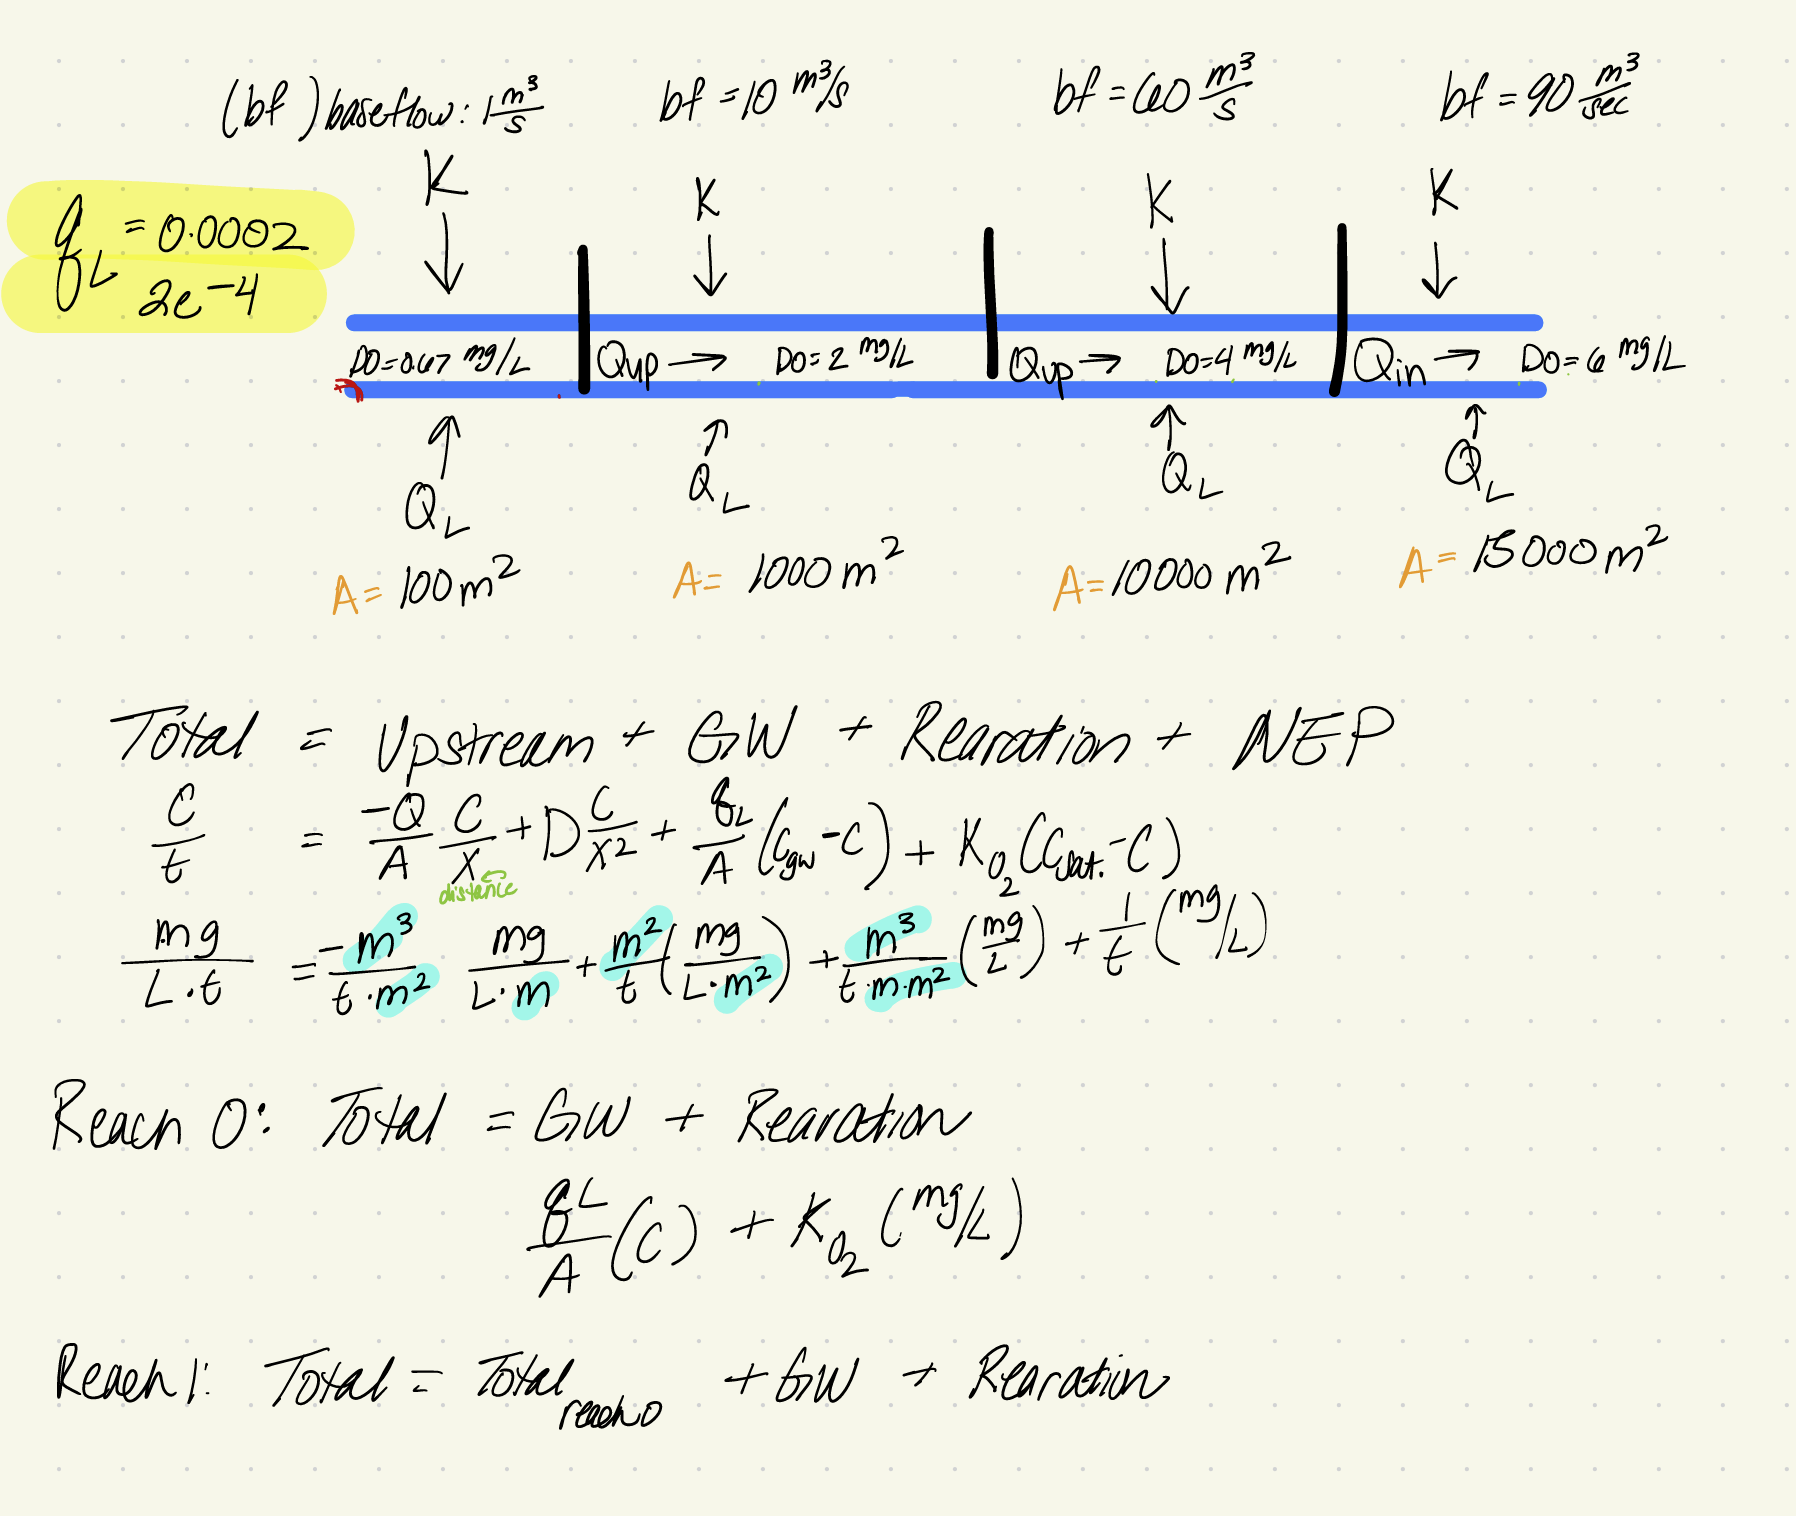 (bf) baseflow: 1 m³/s
bf = 10 m³/s
bf = 60 m³/s
bf = 90 m³/sec
K K K K
qL = 0.0002
2e⁻⁴
DO = 0.67 mg/L Qup → DO = 2 mg/L Qup → DO = 4 mg/L Qin → DO = 6 mg/L
QL QL QL QL
A = 100 m² A = 1000 m² A = 10000 m² A = 15000 m²
Total = Upstream + GW + Rearation + NEP
C/t = -Q/A C/X + D C/X² + qL/A (Cgw - C) + KO₂ (Csat. - C)
distance
mg/L·t = -m³/t·m² mg/L·m + m²/t (mg/L·m²) + m³/t·m·m² (mg/L) + 1/t (mg/L)
Reach 0: Total = GW + Rearation
qL/A (C) + KO₂ (mg/L)
Reach 1: Total = Total reach 0 + GW + Rearation